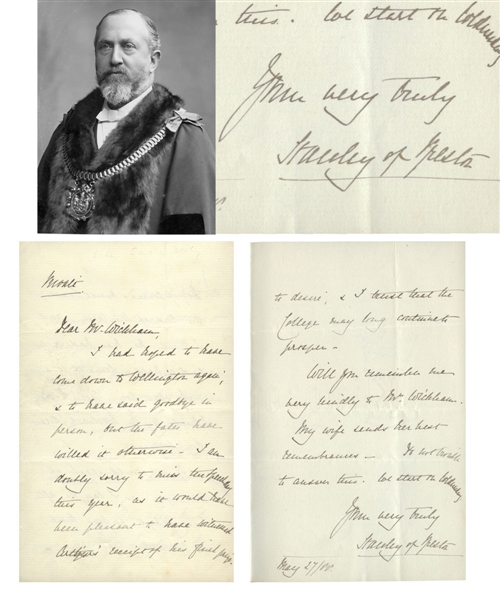 this. We start on Wednesday
Yours very truly
Stanley of Preston
Private
Dear Mr. Wickham,
I had hoped to have
come down to Wellington again,
& to have said goodbye in
person, but the fates have
willed it otherwise – I am
doubly sorry to miss the
this year, as it would have
been pleasant to have witnessed
receipt of his final
to desire, & I trust that the
College may long continue to
prosper –
Will you remember me
very kindly to Mrs Wickham.
My wife sends her best
remembrances – Do not trouble
to answer this. We start on Wednesday
Yours very truly
Stanley of Preston
May 27/88